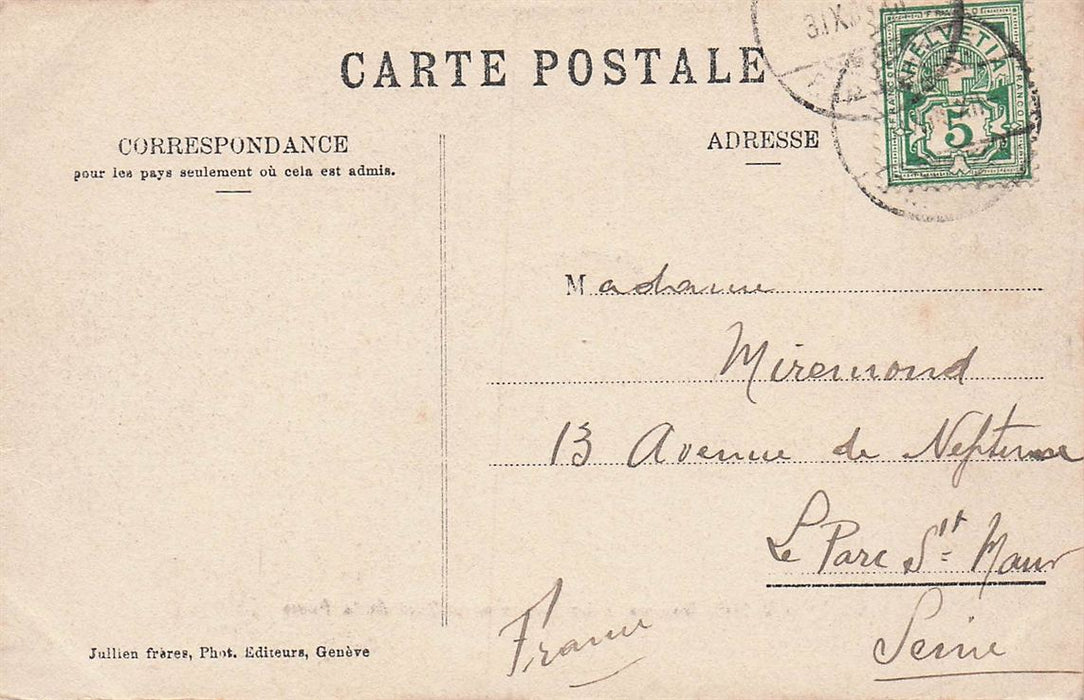 CARTE POSTALE
CORRESPONDANCE
pour les pays seulement où cela est admis.
ADRESSE
HELVETIA
FRANCO
5
Madame
Miremond
13 Avenue de Neptune
Le Parc St Maur
Seine
France
Jullien frères, Phot. Editeurs, Genève